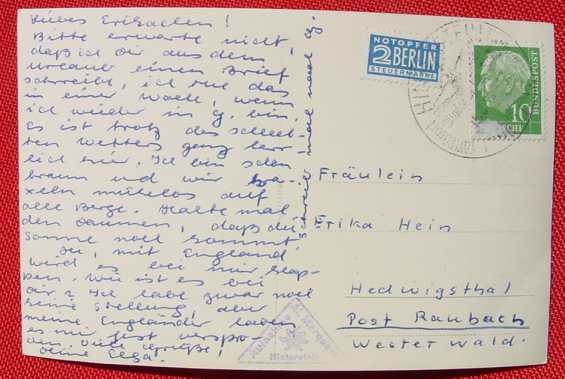 Liebes Erikachen!
Bitte erwarte nicht,
daß ich Dir aus dem
Urlaub einen Brief
schreibe, ich tue das
in einer Woche, wenn
ich wieder in G. bin.
Es ist trotz des schlech-
ten Wetters ganz herr-
lich hier. Ich bin schon
braun und wir kra-
xeln mühelos auf
alle Berge. Halte mal
den Daumen, daß die
Sonne noch kommt.
Ja, mit England
wird es bei mir klap-
pen. Wie ist es bei
dir? Ich habe zwar noch
keine Stellung, aber
meine Engländer haben
es mir fest verspro-
chen. Viele Grüße!
Deine Elga.
Schreib mal nach G.
NOTOPFER
2 BERLIN
STEUERMARKE
10
DEUTSCHE
BUNDESPOST
Fräulein
Erika Hein
Hedwigsthal
Post Raubach
Westerwald.
Hinterstein